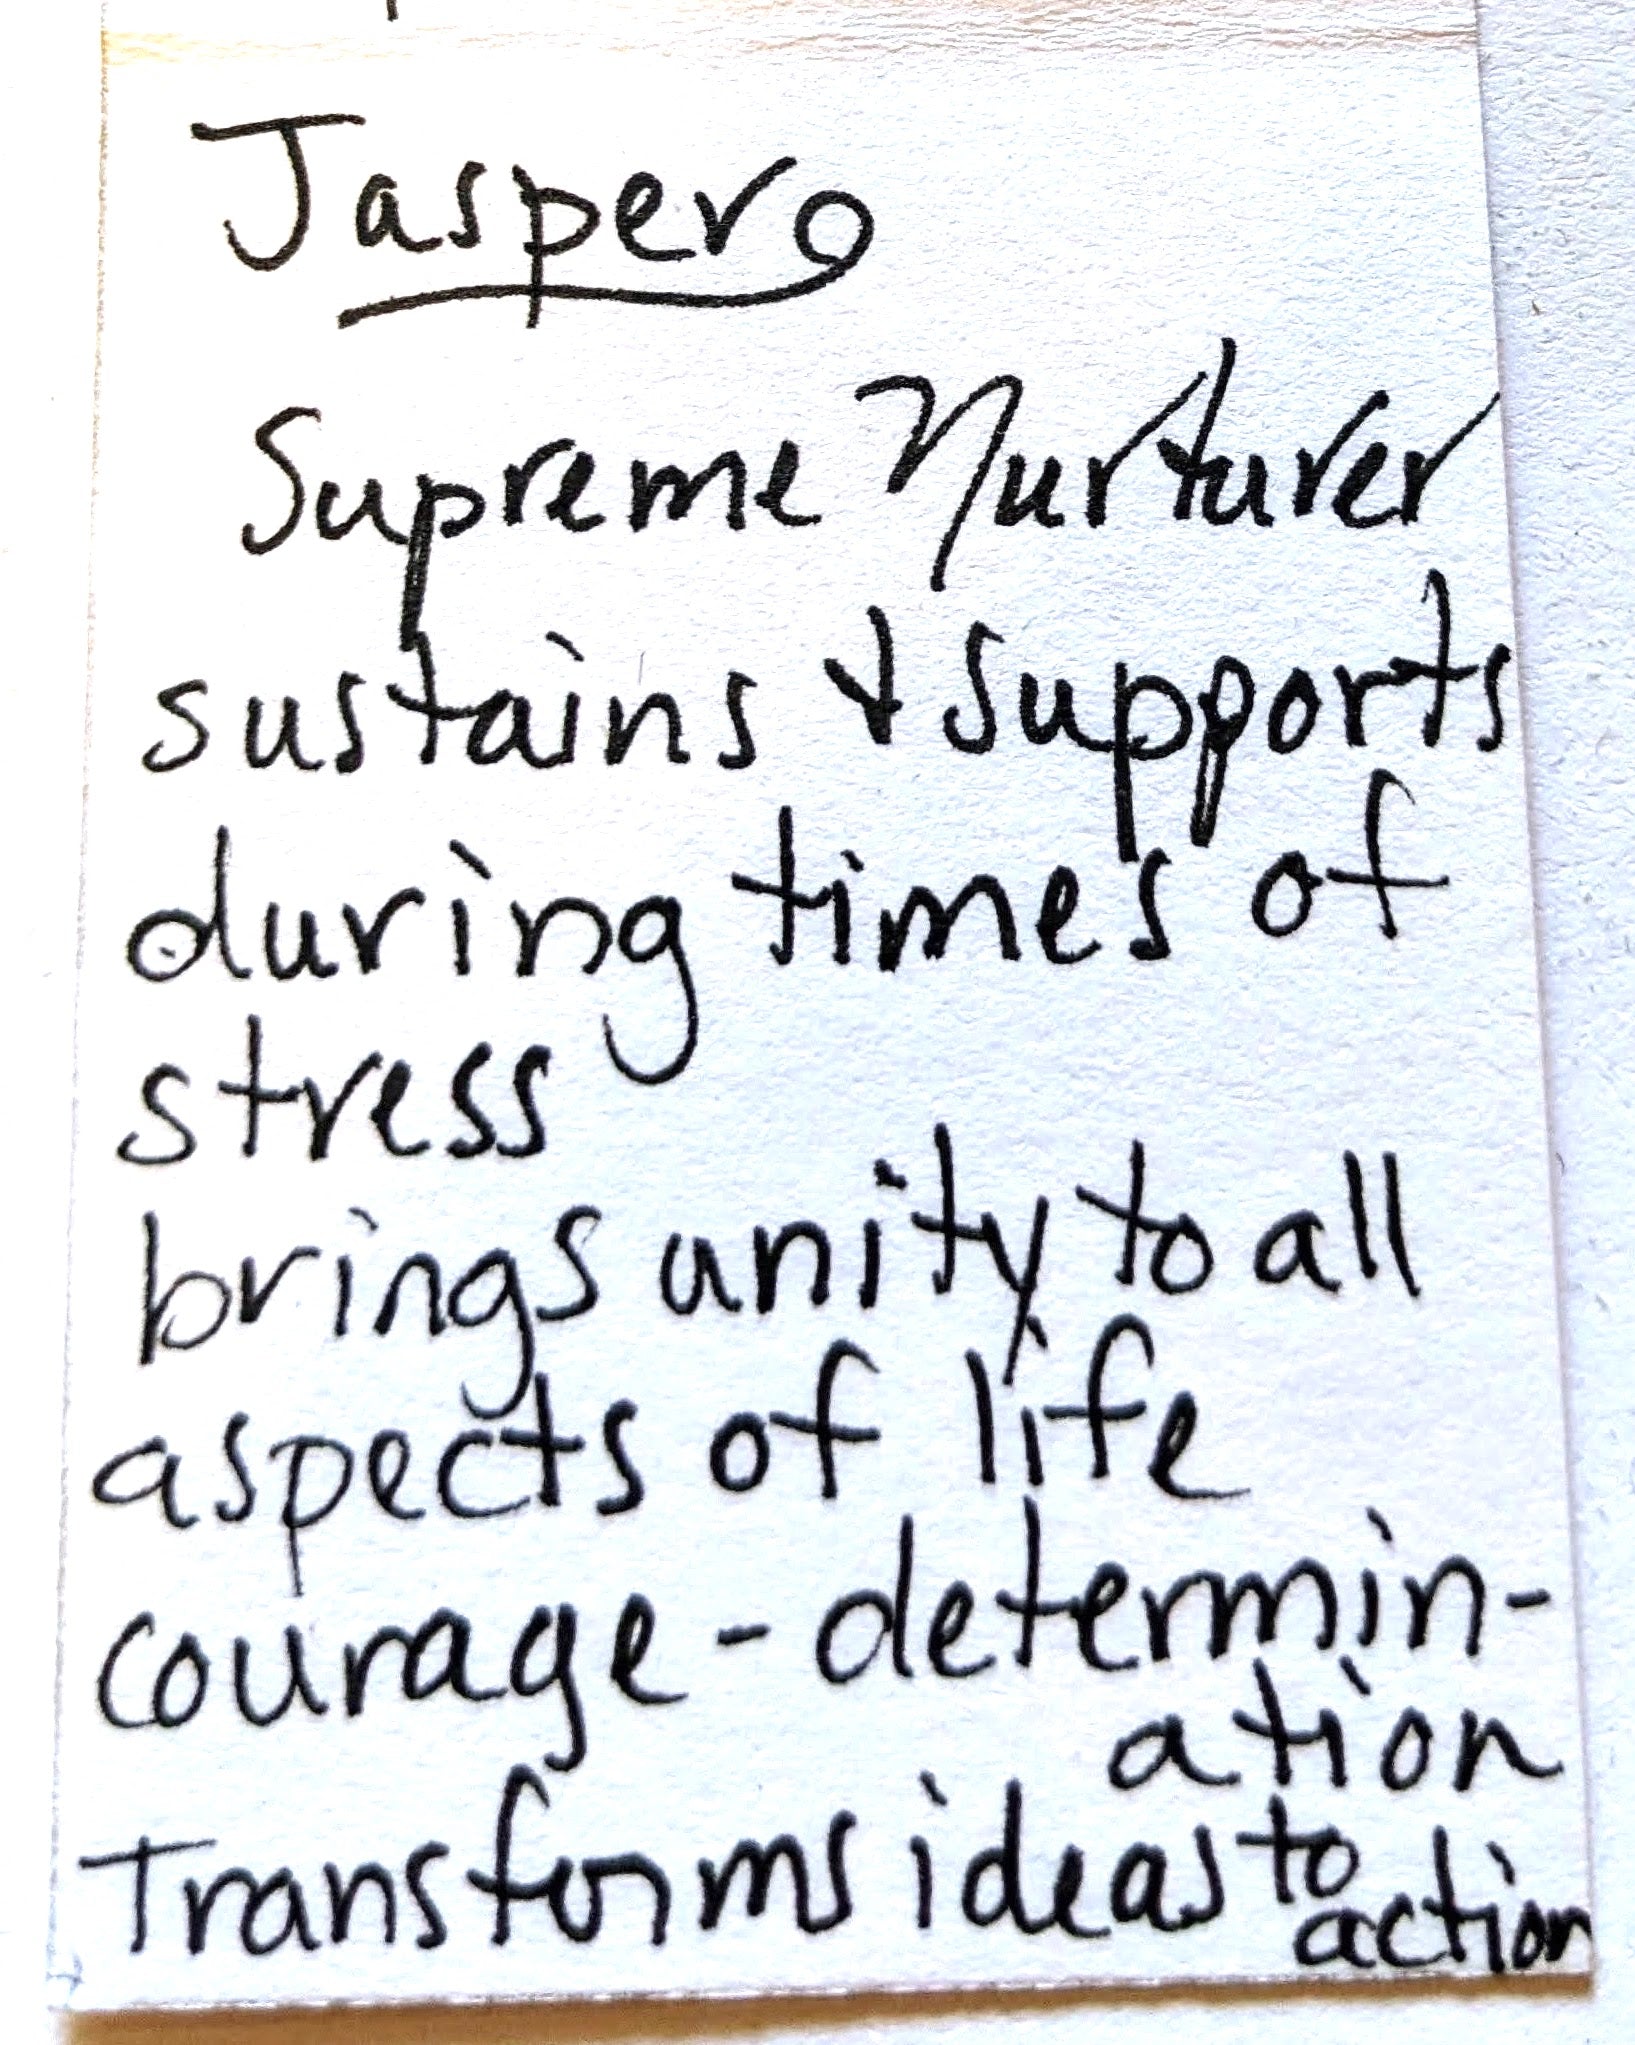 Jasper
Supreme Nurturer
sustains & supports
during times of
stress
brings unity to all
aspects of life
courage - determin-
ation
Transforms ideas to
action